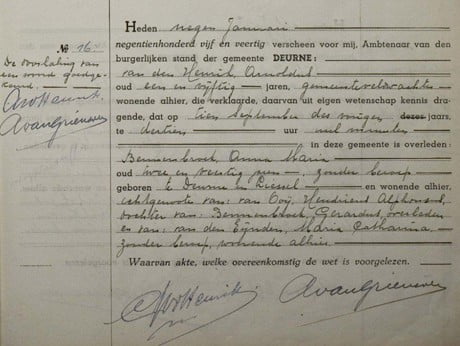 № 16
De doorhaling van
een woord goedge-
keurd.
Heden negen Januari
negentienhonderd vijf en veertig verscheen voor mij, Ambtenaar van den
burgerlijken stand der gemeente DEURNE:
van den Heurik, Arnoldus
oud een en vijftig — jaren, gemeenteveldwachter
wonende alhier, die verklaarde, daarvan uit eigen wetenschap kennis dra-
gende, dat op tien September des vorigen dezes jaars,
te dertien uur nul minuten
in deze gemeente is overleden:
Bennenbroek, Anna Maria
oud twee en veertig jaren, zonder beroep
geboren te Deurne en Liessel en wonende alhier,
echtgenoote van: van Ooij, Hendricus Alphonsus,
dochter van: Bennenbroek, Gerardus, overleden
en van: van den Eijnden, Maria Catharina —
zonder beroep, wonende alhier.
Waarvan akte, welke overeenkomstig de wet is voorgelezen.